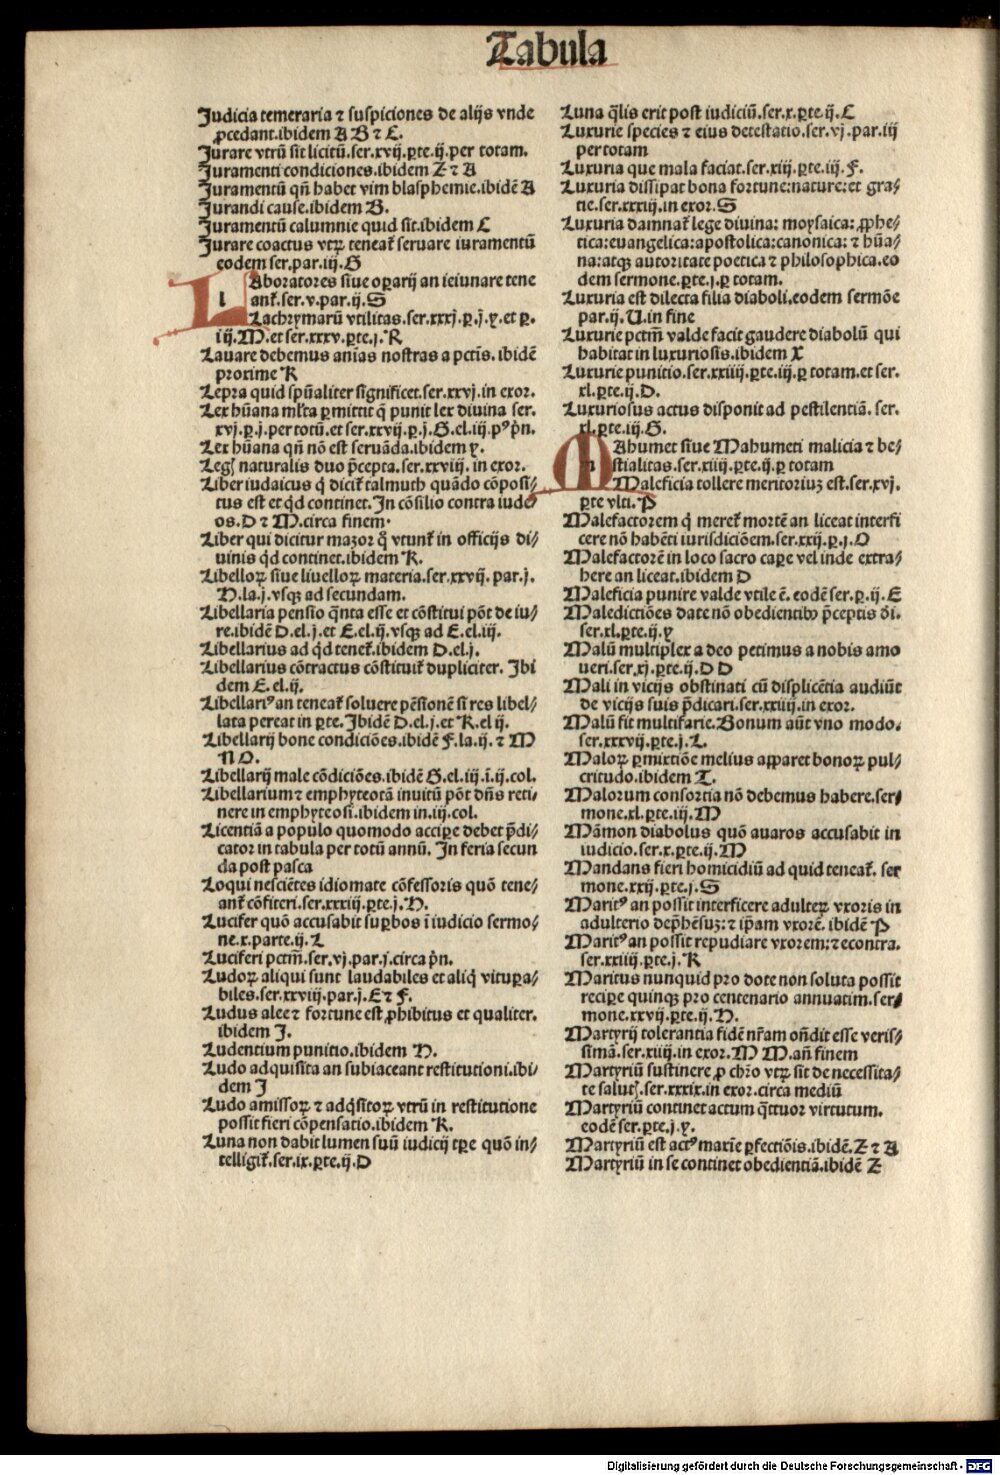 Tabula
Iudicia temeraria ⁊ suspiciones de alijs vnde
ꝓcedant.ibidem A B ⁊ C.
Iurare vtrū sit licitū.ser.xvij.ꝑte.ij.per totam.
Iuramenti condiciones.ibidem Z ⁊ A
Iuramentū qn̄ habet vim blasphemie.ibidē A
Iurandi cause.ibidem B.
Iuramentū calumnie quid sit.ibidem C
Iurare coactus vtꝝ teneat̄ seruare iuramentū
eodem ser.par.iij.G
LAboratores siue oꝑarij an ieiunare tene
ant̄.ser.v.par.ij.S
Lachrymarū vtilitas.ser.xxxj.p.j.y.et p.
iij.M.et ser.xxxv.ꝑte.j.R
Lauare debemus aniās nostras a pctīs.ibidē
proxime R
Lepra quid spūaliter significet.ser.xxvj.in exor.
Lex hūana ml̄ta ꝑmittit q̄ punit lex diuina ser.
xvj.p.j.per totū.et ser.xxvij.p.j.G.el.iij.pꝰ pn̄.
Lex hūana qn̄ nō est seruāda.ibidem y.
Legꝭ naturalis duo p̄cepta.ser.xxviij.in exor.
Liber iudaicus q̄ dicit̄ talmuth quādo cōposi/
tus est et qd̄ continet.In cōsilio contra iude
os.D ⁊ M.circa finem.
Liber qui dicitur mazor q̄ vtunt̄ in officijs di/
uinis qd̄ continet.ibidem K.
Libelloꝝ siue liuelloꝝ materia.ser.xxvij.par.j.
H.la.j.vsqꝫ ad secundam.
Libellaria pensio q̄nta esse et cōstitui pōt de iu/
re.ibidē D.el.j.et E.el.ij.vsqꝫ ad E.el.iij.
Libellarius ad qd̄ tenet̄.ibidem D.el.j.
Libellarius cōtractus cōstituit̄ dupliciter. Ibi
dem E.el.ij.
Libellariꝰ an teneat̄ soluere pēsionē si res libel/
lata pereat in ꝑte.Ibidē D.el.j.et K.el ij.
Libellarij bone condiciōes.ibidē F.la.ij.⁊ M
N O.
Libellarij male cōdiciōes.ibidē G.el.iij.ī.ij.col.
Libellarium ⁊ emphyteotā inuitū pōt dn̄s reti/
nere in emphyteosī.ibidem in.iij.col.
Licentiā a populo quomodo accipe debet p̄di/
cator in tabula per totū annū. In feria secun
da post pasca
Loqui nesciētes idiomate cōfessoris quō tene/
ant̄ cōfiteri.ser.xxxiij.ꝑte.j.H.
Lucifer quō accusabit suꝑbos ī iudicio sermo/
ne.x.parte.ij.L
Luciferi pctm̄.ser.vj.par.j.circa pn̄.
Ludoꝝ aliqui sunt laudabiles et aliq̄ vituꝑa/
biles.ser.xxviij.par.j.E ⁊ F.
Ludus alee ⁊ fortune est ꝓhibitus et qualiter.
ibidem I.
Ludentium punitio.ibidem H.
Ludo adquisita an subiaceant restitutioni.ibi/
dem I
Ludo amissoꝝ ⁊ adq̄sitoꝝ vtrū in restitutione
possit fieri cōpensatio.ibidem K.
Luna non dabit lumen suū iudicij tꝑe quō in/
telligit̄.ser.ix.ꝑte.ij.D
Luna q̄lis erit post iudiciū.ser.x.ꝑte.ij.C
Luxurie species ⁊ eius detestatio.ser.vj.par.iij
per totam
Luxuria que mala faciat.ser.xiij.ꝑte.iij.F.
Luxuria dissipat bona fortune:nature:et gra/
tie.ser.xxxiij.in exor.S
Luxuria damnat̄ lege diuina: moysaica: ꝓphe/
tica:euangelica:apostolica:canonica: ⁊ hūa/
na:atqꝫ autoritate poetica ⁊ philosophica.eo
dem sermone.ꝑte.j.ꝑ totam.
Luxuria est dilecta filia diaboli.eodem sermōe
par.ij.V.in fine
Luxurie pctm̄ valde facit gaudere diabolū qui
habitat in luxuriosis.ibidem X
Luxurie punitio.ser.xxiiij.ꝑte.iij.ꝑ totam.et ser.
xl.ꝑte.ij.D.
Luxuriosus actus disponit ad pestilentiā. ser.
xl.ꝑte.iij.G.
MAhumet siue Mahumeti malicia ⁊ be/
stialitas.ser.xiiij.ꝑte.ij.ꝑ totam
Maleficia tollere meritoriuꝫ est.ser.xvj.
ꝑte vlti.P
Malefactorem q̄ meret̄ mortē an liceat interfi
cere nō habēti iurisdiciōem.ser.xxij.p.j.O
Malefactorē in loco sacro caꝑe vel inde extra/
here an liceat.ibidem D
Maleficia punire valde vtile ē. eodē ser.p.ij.E
Maledictiōes date nō obedientibꝰ p̄ceptis di.
ser.xl.ꝑte.ij.y
Malū multiplex a deo petimus a nobis amo
ueri.ser.xj.ꝑte.ij.D D
Mali in vicijs obstinati cū displicētia audiūt
de vicijs suis p̄dicari.ser.xxiiij.in exor.
Malū fit multifarie.Bonum aūt vno modo.
ser.xxxvij.ꝑte.j.L.
Maloꝝ ꝑmixtiōe melius apparet bonoꝝ pul/
critudo.ibidem T.
Malorum consortia nō debemus habere.ser/
mone.xl.ꝑte.iij.M
Māmon diabolus quō auaros accusabit in
iudicio.ser.x.ꝑte.ij.M
Mandans fieri homicidiū ad quid teneat̄. ser
mone.xxij.ꝑte.j.S
Maritꝰ an possit interficere adulteꝝ vxoris in
adulterio dep̄hēsuꝫ: ⁊ ipam vxorē. ibidē P
Maritꝰ an possit repudiare vxorem:⁊ econtra.
ser.xxiiij.ꝑte.j.R
Maritus nunquid pro dote non soluta possit
reciꝑe quinqꝫ pro centenario annuatim.ser/
mone.xxvij.ꝑte.ij.H.
Martyrij tolerantia fidē nr̄am on̄dit esse veris/
simā.ser.xiiij.in exor.M M.an̄ finem
Martyriū sustinere ꝓ chr̄o vtꝝ sit de necessita/
te salutꝭ.ser.xxxix.in exor.circa mediū
Martyriū continet actum q̄ttuor virtutum.
eodē ser.ꝑte.j.y.
Martyriū est actꝰ maxīe ꝑfectiōis.ibidē.Z ⁊ A
Martyriū in se continet obedientiā.ibidē Z
Digitalisierung gefördert durch die Deutsche Forschungsgemeinschaft - DFG